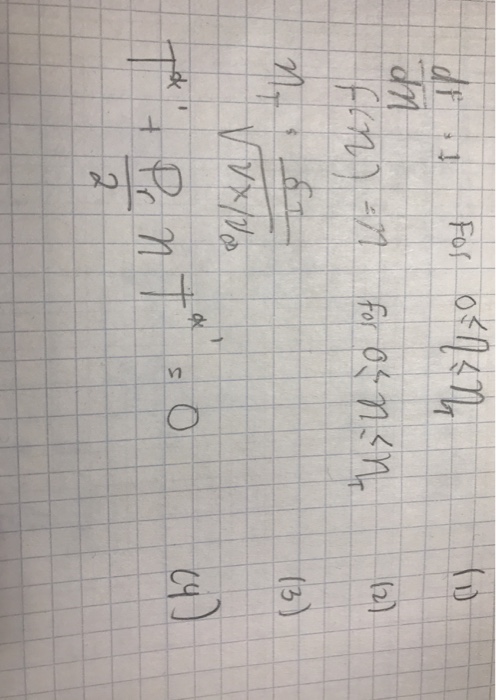 df/dη = 1 For 0 ≤ η ≤ η_T (1)
f(η) = η for 0 ≤ η ≤ η_T (2)
η_T = δ_T / √(νx/u∞) (3)
T*' + Pr/2 η T*' = 0 (4)